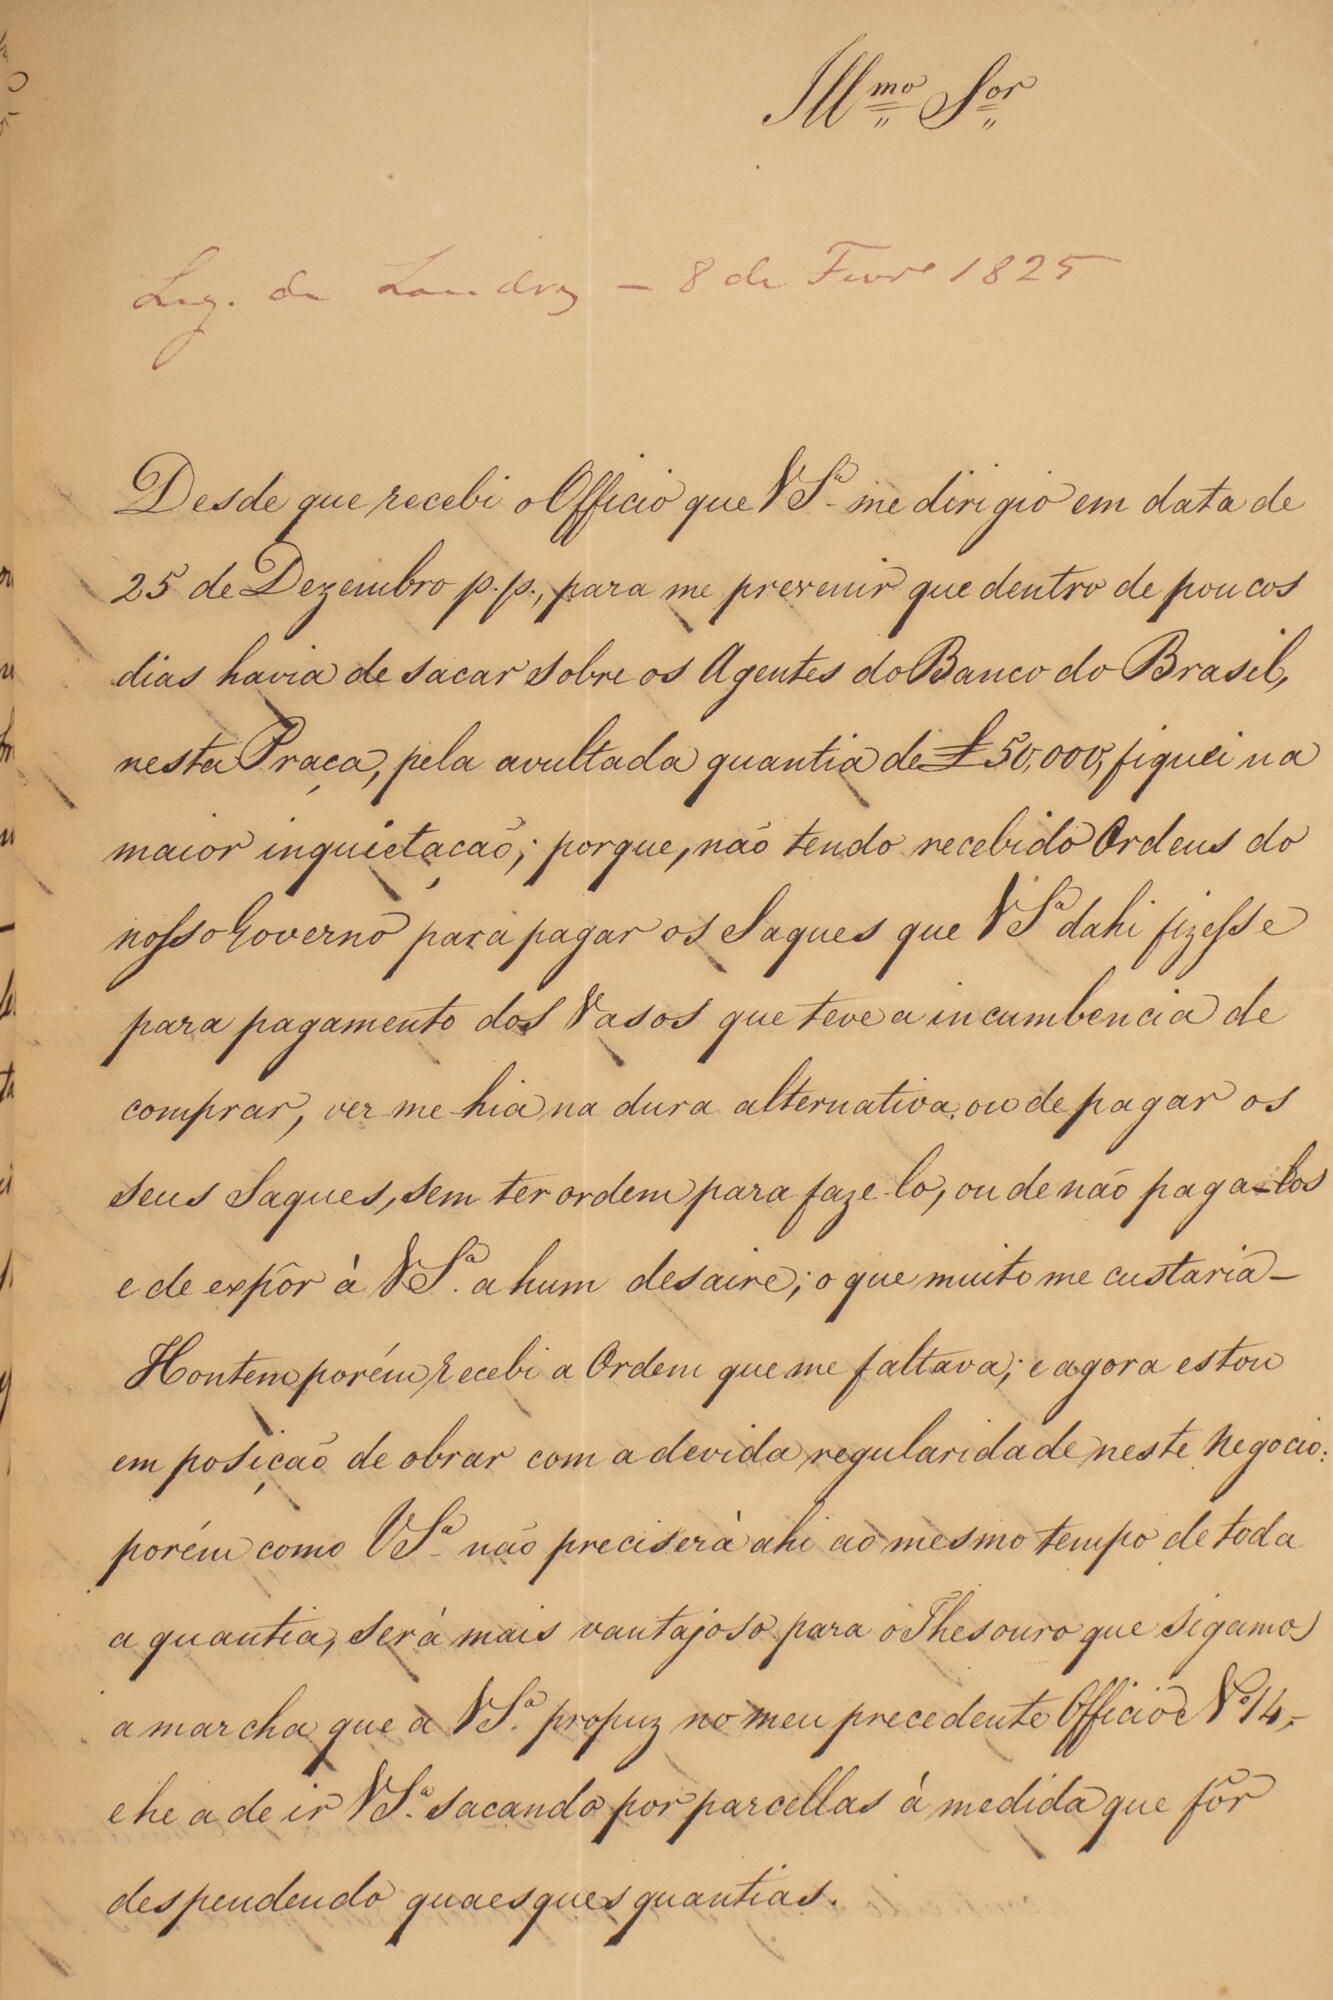 Illmo Sor
Leg. de Londres – 8 de Fevro 1825
Desde que recebi o Officio que VSa me dirigio em data de
25 de Dezembro p.p., para me prevenir que dentro de poucos
dias havia de sacar sobre os Agentes do Banco do Brasil,
nesta Praça, pela avultada quantia de £50,000, fiquei na
maior inquietação; porque, não tendo recebido Ordens do
nosso Governo para pagar os Saques que VSa dahi fizesse
para pagamento dos Vasos que teve a incumbencia de
comprar, ver me-hia na dura alternativa, ou de pagar os
seus Saques, sem ter ordem para faze-lo, ou de não paga-los
e de expôr à VSa. a hum desaire; o que muito me custaria –
Hontem porém recebi a Ordem que me faltava; e agora estou
em posição de obrar com a devida regularidade neste Negocio:
porém como VSa não preciserà ahi ao mesmo tempo de toda
a quantia, será mais vantajoso para o Thesouro que sigamos
a marcha que a VSa. propuz no meu precedente Officio No 14,
e he a de ir VSa. sacando por parcellas à medida que fôr
despendendo quaesques quantias.